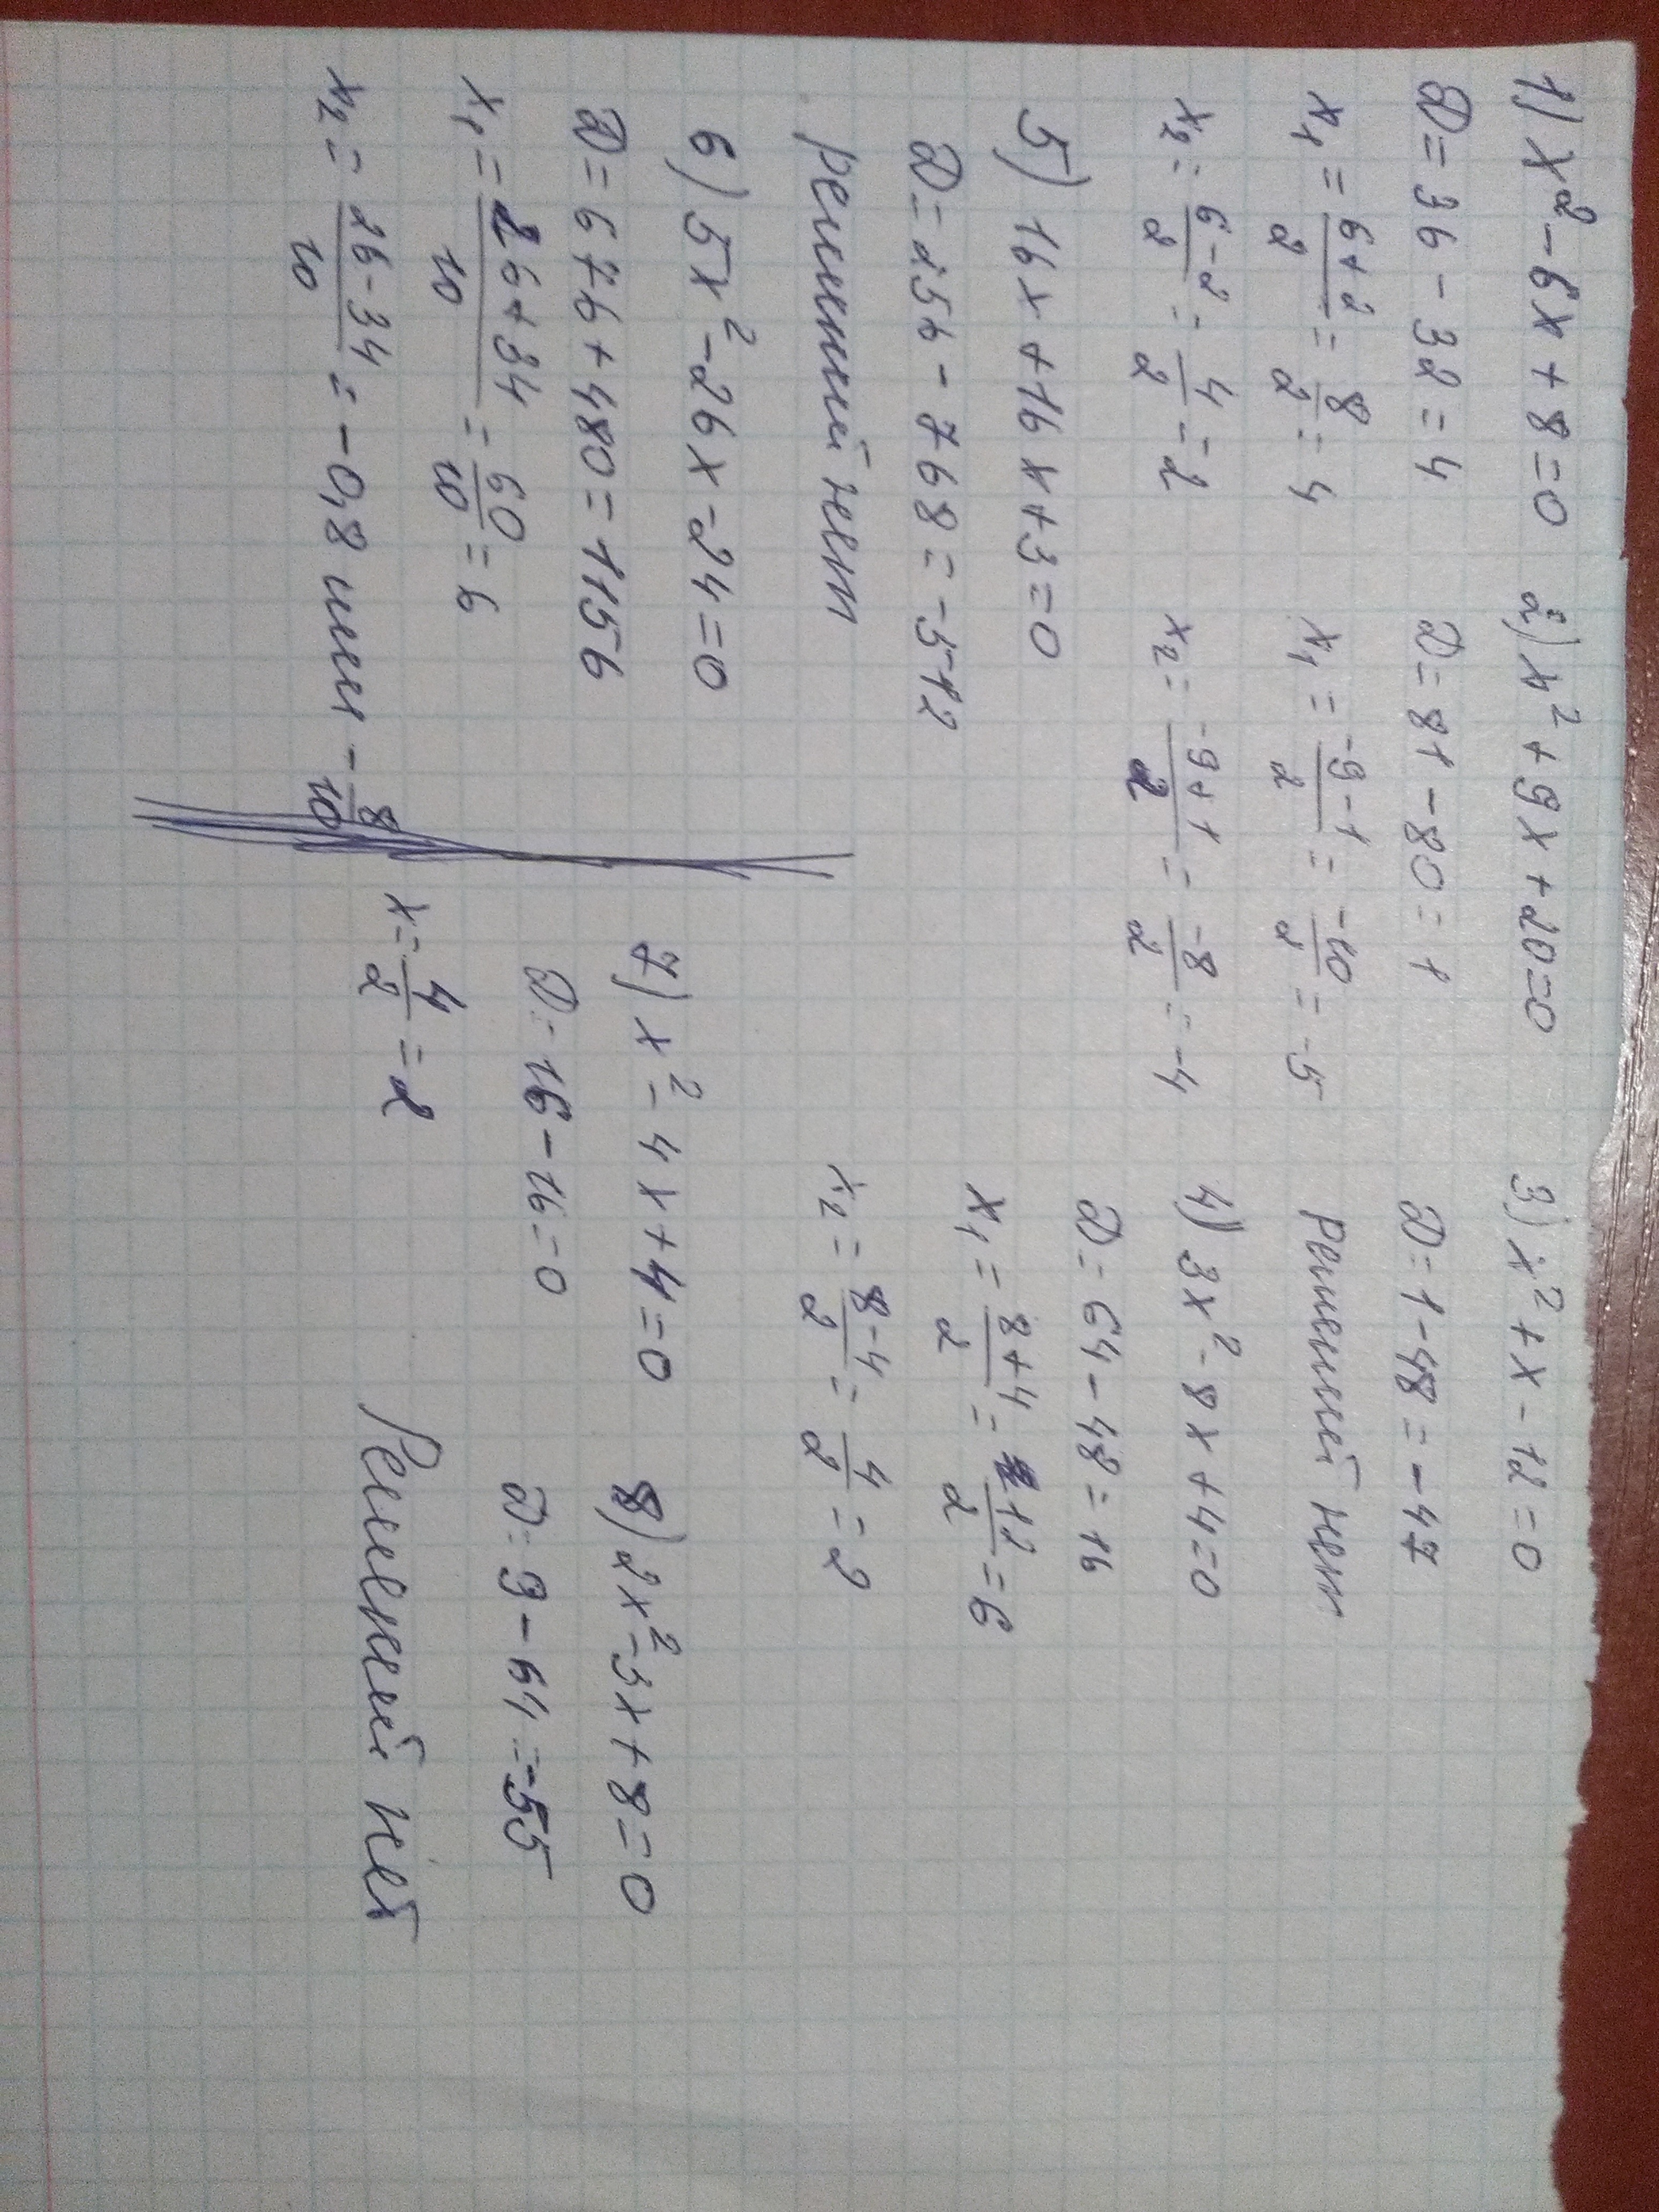 1) x² - 6x + 8 = 0
D = 36 - 32 = 4
x₁ = (6+2)/2 = 8/2 = 4
x₂ = (6-2)/2 = 4/2 = 2
2) x² + 9x + 20 = 0
D = 81 - 80 = 1
x₁ = (-9-1)/2 = -10/2 = -5
x₂ = (-9+1)/2 = -8/2 = -4
3) x² + x - 12 = 0
D = 1 - 48 = -47
решений нет
4) 3x² - 8x + 4 = 0
D = 64 - 48 = 16
x₁ = (8+4)/2 = 12/2 = 6
x₂ = (8-4)/2 = 4/2 = 2
5) 16x + 16x + 3 = 0
D = 256 - 768 = -512
решений нет
6) 5x² - 26x - 24 = 0
D = 676 + 480 = 1156
x₁ = (26+34)/10 = 60/10 = 6
x₂ = (26-34)/10 = -0,8 или -8/10
7) x² - 4x + 4 = 0
D = 16 - 16 = 0
x = 4/2 = 2
8) 2x² - 3x + 8 = 0
D = 9 - 64 = -55
Решений нет